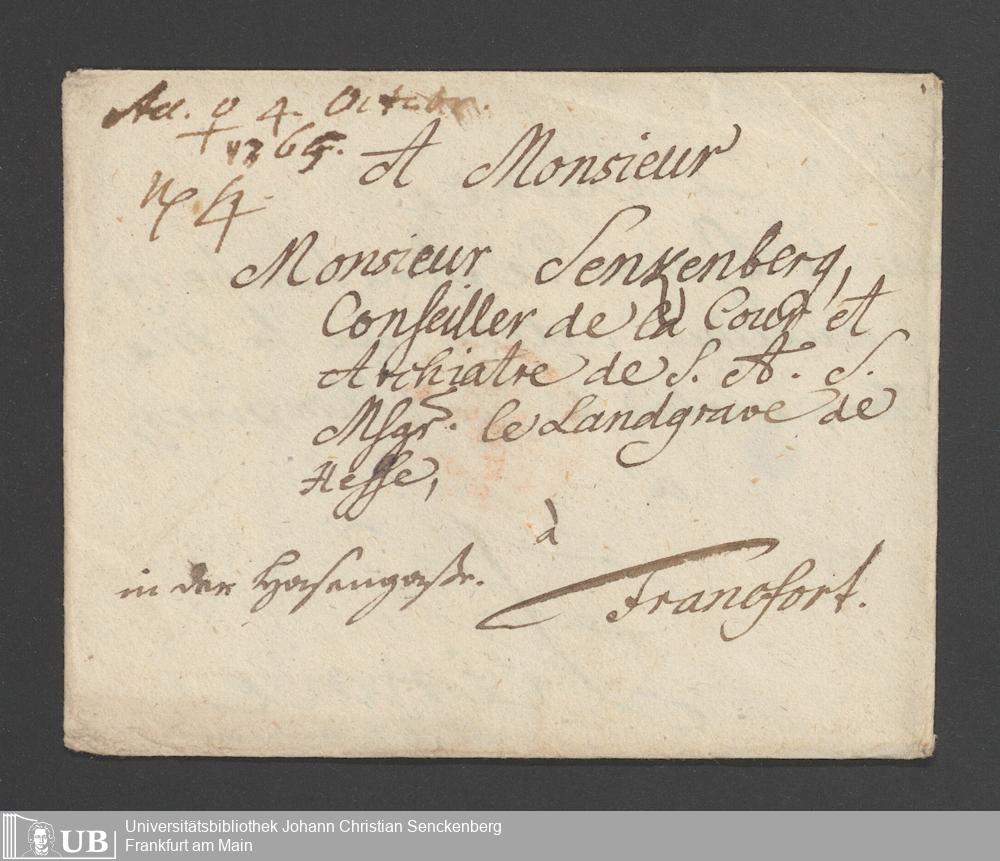 Acc. 4. Octobr.
1765.
4
A Monsieur
Monsieur Senkenberg,
Conseiller de la Cour et
Archiatre de S. A. S.
Msgr. le Landgrave de
Hesse,
à
in der Hasengasse.
Francfort.
UB
Universitätsbibliothek Johann Christian Senckenberg
Frankfurt am Main